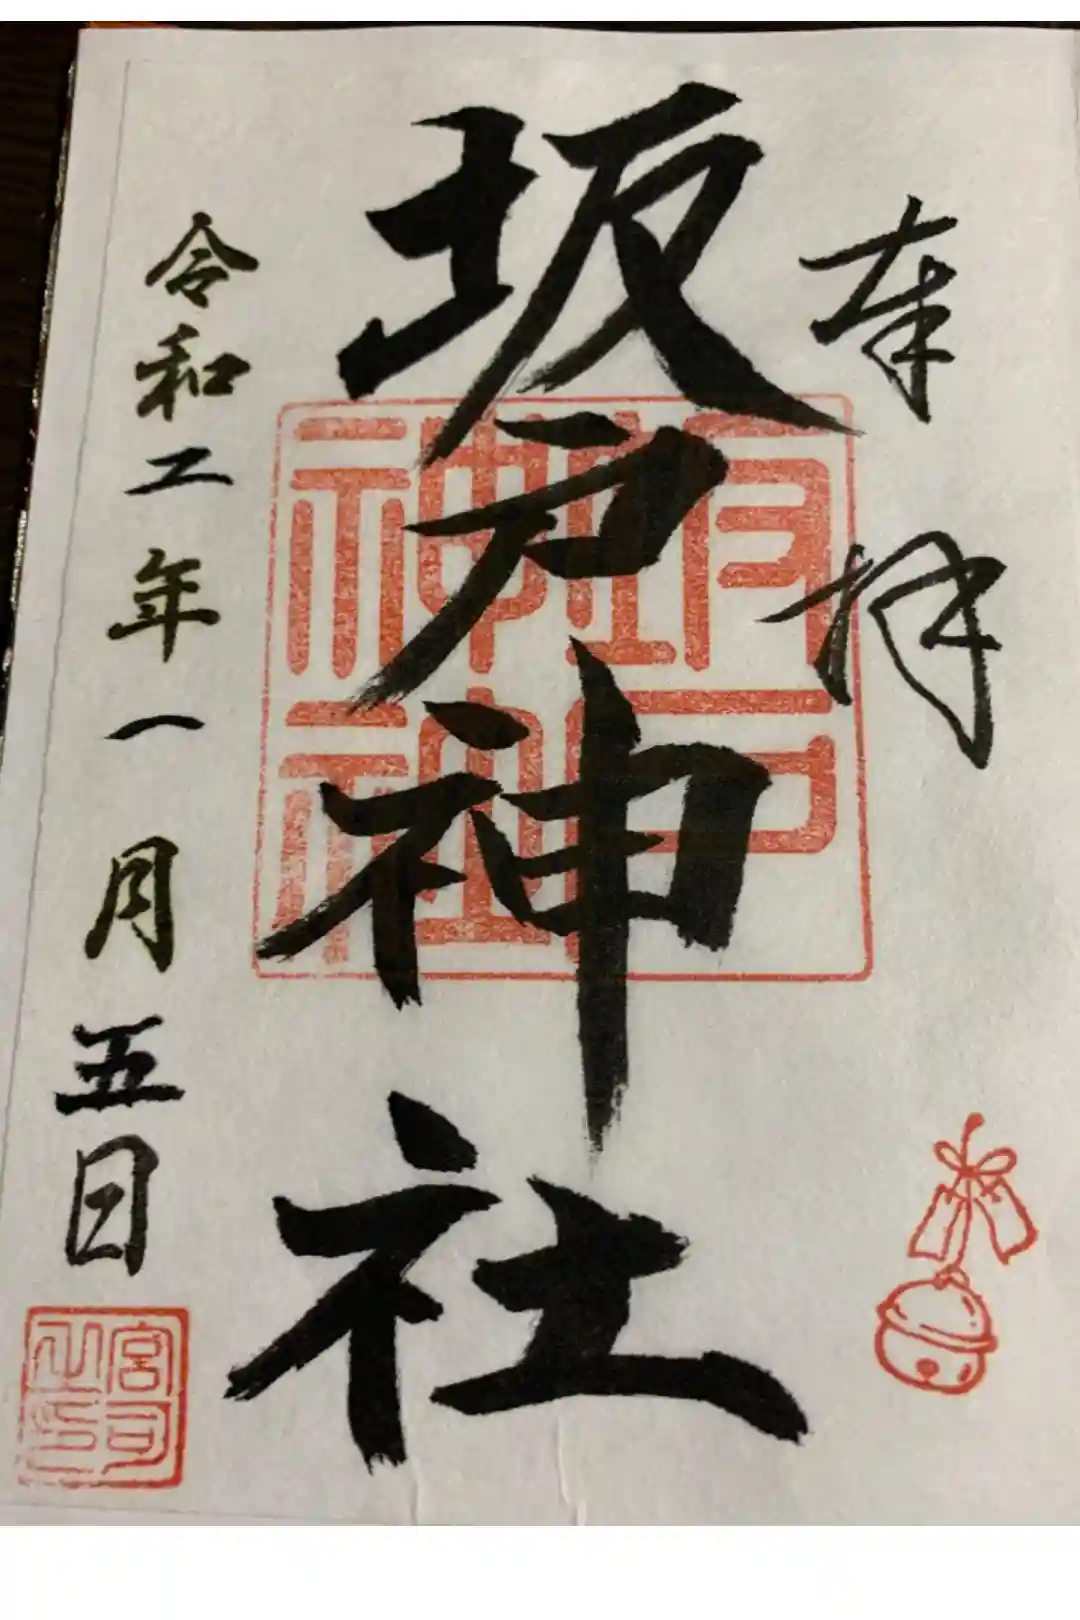 奉拝
坂戸神社
令和二年一月五日
坂戸神社
神社
宮司之印